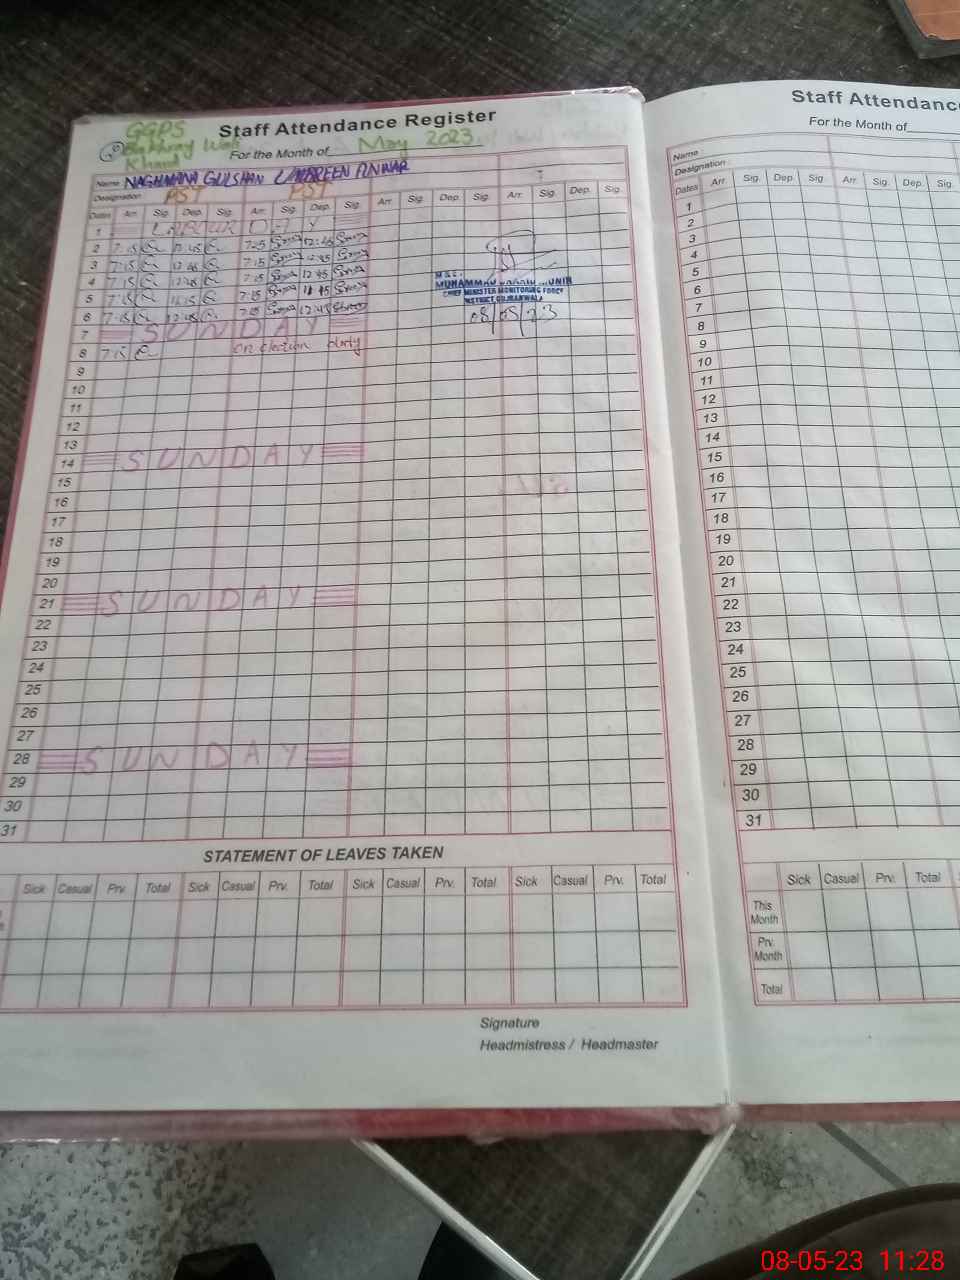 GGPS
Staff Attendance Register
Wali
For the Month of May 2023
Name : NAGHMANA GULSHAN UMBREEN ANWAR
Designation : PST PST
Dates Arr. Sig. Dep. Sig. Arr. Sig. Dep. Sig. Arr. Sig. Dep. Sig. Arr. Sig. Dep. Sig.
1 LABOUR DAY
2 7:15 12:45 12:45
3 7:15 12:45 7:15 12:45
4 7:15 12:45 7:15 12:45
5 7:15 7:15
6 7:15 12:45 12:45
7 SUNDAY
8 7:15 on election duty
9
10
11
12
13
14 SUNDAY
15
16
17
18
19
20
21 SUNDAY
22
23
24
25
26
27
28 SUNDAY
29
30
31
MUHAMMAD
CHIEF MINISTER MONITORING FORCE
DISTRICT GUJRANWALA
08/05/23
STATEMENT OF LEAVES TAKEN
Sick Casual Prv. Total Sick Casual Prv. Total Sick Casual Prv. Total Sick Casual Prv. Total
Signature
Headmistress / Headmaster
Staff Attendanc
For the Month of
Name :
Designation :
Dates Arr. Sig. Dep. Sig. Arr. Sig. Dep. Sig.
1
2
3
4
5
6
7
8
9
10
11
12
13
14
15
16
17
18
19
20
21
22
23
24
25
26
27
28
29
30
31
Sick Casual Prv. Total
This
Month
Prv.
Month
Total
08-05-23 11:28